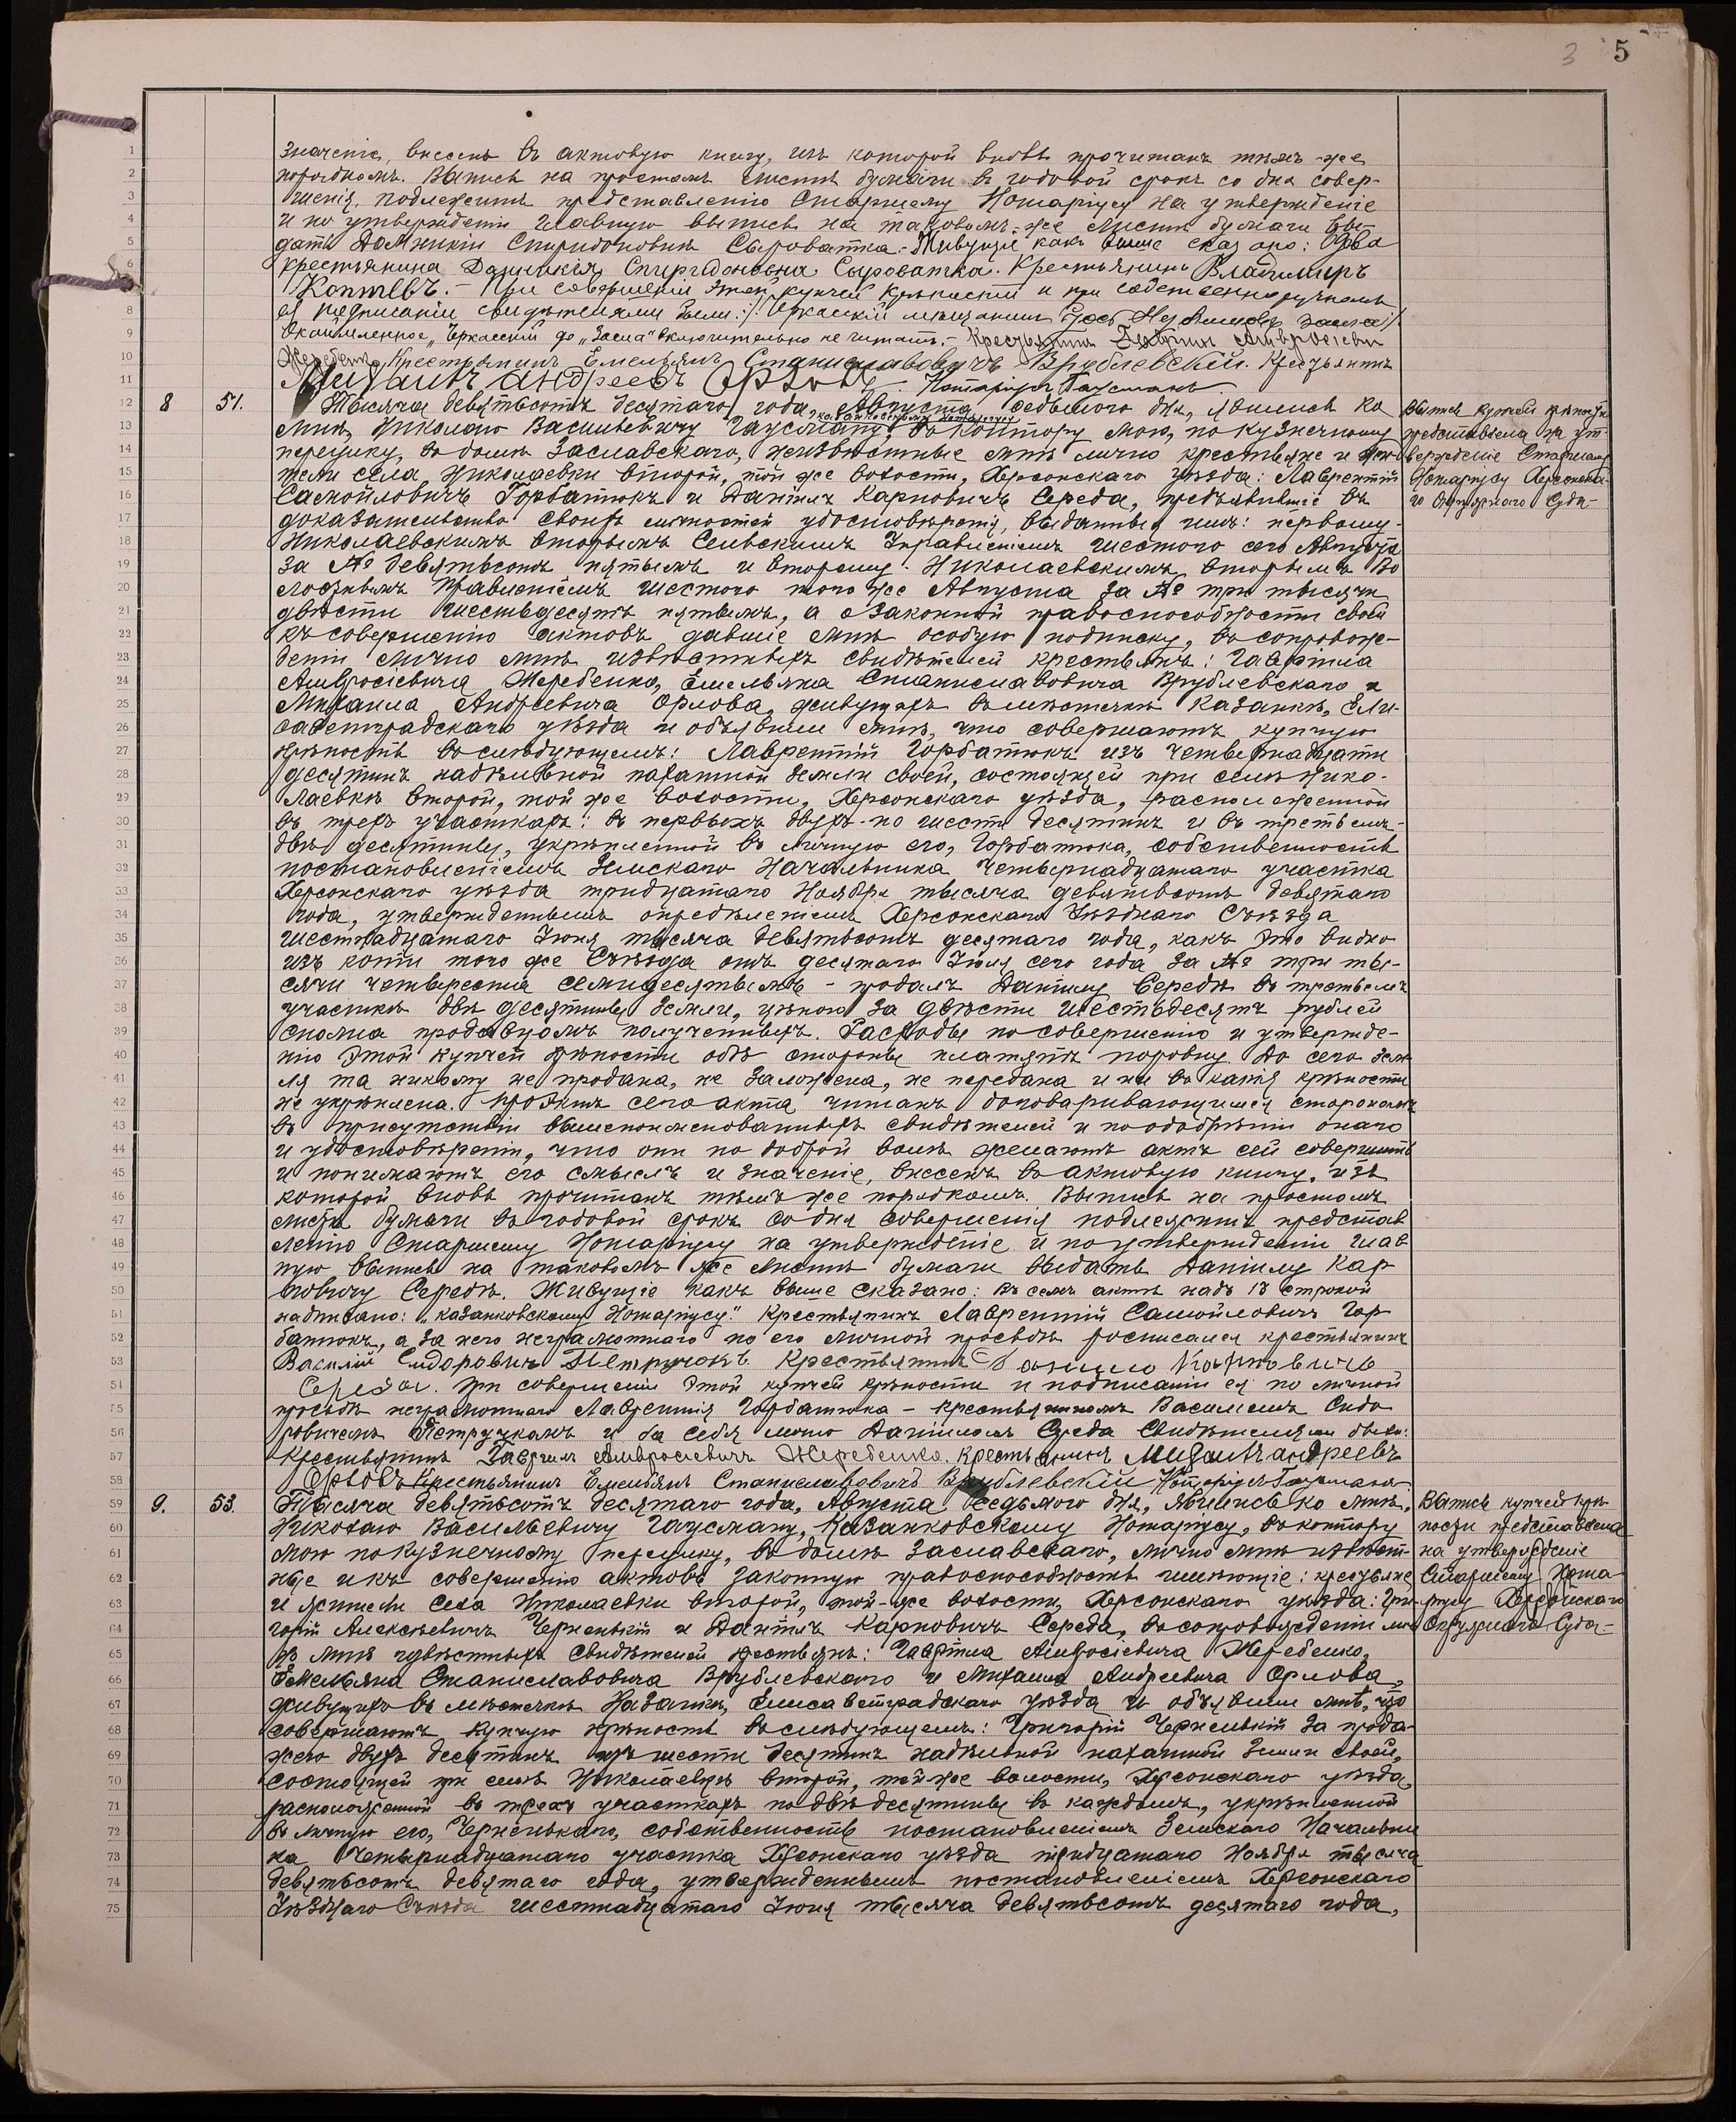 3 5
1 значеніе, внесенъ въ актовую книгу, изъ которой вновь прочитанъ тѣмъ-же
2 порядкомъ. Выпись на простомъ листѣ бумаги въ годовой срокъ со дня совер-
3 шенія, подлежитъ представленію Старшему Нотаріусу на утвержденіе
4 и по утвержденіи главную выпись на таковомъ-же листѣ бумаги вы-
5 дать Домникіи Спиридоновнѣ Сыроватка. Живущіе какъ выше сказано: Вдова
6 крестьянина Домникія Спиридоновна Сыроватка. Крестьянинъ Владимиръ
Коптевъ. – При совершеніи этой купчей крѣпости и при собственноручномъ
8 ея подписаніи свидѣтелями были:
9 Окаймленное „Черкасскій до „Заела" включительно не читать. – Крестьянинъ Гавріилъ Амвросіевичъ
10 Жеребенко Крестьянинъ Емельянъ Станиславовичъ Врублевскій. Крестьянинъ
11 Михаилъ Андреевъ Орловъ. Нотаріусъ Гаусманъ
12 8 51. Тысяча девятьсотъ десятаго года, Августа седьмого дня, явились ко
казанковскому Нотаріусу,
13 мнѣ, Николаю Васильевичу Гаусману, въ контору мою, по кузнечному
14 переулку, въ домѣ Заславскаго, неизвѣстные мнѣ лично крестьяне и жи-
15 тели села Николаевки второй, той же волости, Херсонскаго уѣзда: Лаврентій
16 Самойловичъ Горбатюкъ и Даніилъ Карповичъ Середа, предъявившіе въ
17 доказательство своихъ личностей удостовѣренія, выданныя имъ: первому-
18 Николаевскимъ вторымъ Сельскимъ Управленіемъ шестого сего Августа
19 за № девятьсотъ пятымъ и второму – Николаевскимъ вторымъ Во
20 лостнымъ Правленіемъ шестого того же Августа за № три тысячи
21 двѣсти шестьдесятъ пятымъ, а о законной правоспособности своей
22 къ совершенію актовъ давшіе мнѣ особую подписку, въ сопровож-
23 деніи лично мнѣ извѣстныхъ свидѣтелей крестьянъ: Гавріила
24 Амвросіевича Жеребенко, Емельяна Станиславовича Врублевскаго и
25 Михаила Андреевича Орлова, живущихъ въ мѣстечкѣ Казанкѣ, Ели-
26 саветградскаго уѣзда и объявили мнѣ, что совершаютъ купчую
27 крѣпость въ слѣдующемъ: Лаврентій Горбатюкъ изъ четырнадцати
28 десятинъ надѣльной пахатной земли своей, состоящей при селѣ Нико-
29 лаевкѣ второй, той же волости, Херсонскаго уѣзда, расположенной
30 въ трехъ участкахъ: въ первыхъ двухъ-по шести десятинъ и въ третьемъ-
31 двѣ десятины, укрѣпленной въ личную его, Горбатюка, собственность
32 постановленіемъ Земскаго Начальника Четырнадцатаго участка
33 Херсонскаго уѣзда тридцатаго Ноября тысяча девятьсотъ девятаго
34 года, утвержденнымъ опредѣленіемъ Херсонскаго Уѣзднаго Съѣзда
35 шестнадцатаго Іюня тысяча девятьсотъ десятаго года, какъ это видно
36 изъ копіи того же Съѣзда отъ десятаго Іюля сего года за № три ты-
37 сячи четыреста семидесятымъ – продалъ Даніилу Середѣ въ третьемъ
38 участкѣ двѣ десятины земли, цѣною за двѣсти шестьдесятъ рублей
39 сполна продавцомъ полученныхъ. Расходы по совершенію и утвержде-
40 нію этой купчей крѣпости обѣ стороны платятъ поровну. До сего зем
41 ля та никому не продана, не заложена, не передана и ни въ какія крѣпости
42 не укрѣплена. Проэктъ сего акта читанъ договаривающимся сторонамъ
43 въ присутствіи вышепоименованныхъ свидѣтелей и по одобреніи онаго
44 и удостовѣреніи, что они по доброй волѣ желаютъ актъ сей совершить
45 и понимаютъ его смыслъ и значеніе, внесенъ въ актовую книгу, изъ
46 которой вновь прочитанъ тѣмъ же порядкомъ. Выпись на простомъ
47 листѣ бумаги въ годовой срокъ со дня совершенія подлежитъ представ
48 ленію Старшему Нотаріусу на утвержденіе и по утвержденіи глав
49 ную выпись на таковомъ же листѣ бумаги выдать Даніилу Кар
50 повичу Середѣ. Живущіе какъ выше сказано: Въ семъ актѣ надъ 13 строкой
51 надписано: „казанковскому Нотаріусу." Крестьянинъ Лаврентій Самойловичъ Гор
52 батюкъ, а за него неграмотнаго по его личной просьбѣ росписался крестьянинъ
53 Василій Сидоровичъ Петручокъ Крестьянинъ Данило Карповичъ
54 Середа. При совершеніи этой купчей крѣпости и подписаніи ея по личной
55 просьбѣ неграмотнаго Лаврентія Горбатюка – крестьяниномъ Василіемъ Сидо
56 ровичемъ Петручкомъ и за себя лично Даніиломъ Середа Свидѣтелями были:
57 Крестьянинъ Гавріилъ Амвросіевичъ Жеребенко. Крестьянинъ Михаилъ Андреевъ
58 Орловъ Крестьянинъ Емельянъ Станиславовичъ Врублевскій Нотаріусъ Гаусманъ
59 9. 53. Тысяча девятьсотъ десятаго года, Августа седьмого дня, явились ко мнѣ,
60 Николаю Васильевичу Гаусману, Казанковскому Нотаріусу, въ контору
61 мою по кузнечному переулку, въ домѣ Заславскаго, лично мнѣ извѣст-
62 ные и къ совершенію актовъ законную правоспособность имѣющіе: крестьяне
63 и жители села Николаевки второй, той-же волости, Херсонскаго уѣзда: Гри-
64 горій Алексѣевичъ Черненькій и Даніилъ Карповичъ Середа, въ сопровожденіи лич
65 но мнѣ извѣстныхъ свидѣтелей крестьянъ: Гавріила Амвросіевича Жеребенко,
66 Емельяна Станиславовича Врублевскаго и Михаила Андреевича Орлова,
67 живущихъ въ мѣстечкѣ Казанкѣ, Елисаветградскаго уѣзда и объявили мнѣ, что
68 совершаютъ купчую крѣпость въ слѣдующемъ: Григорій Черненькій за прода-
69 жею двухъ десятинъ изъ шести десятинъ надѣльной пахатной земли своей,
70 состоящей при селѣ Николаевкѣ второй, той-же волости, Херсонскаго уѣзда,
71 расположенной въ трехъ участкахъ по двѣ десятины въ каждомъ, укрѣпленной
72 въ личную его, Черненькаго, собственность постановленіемъ Земскаго Начальни
73 ка Четырнадцатаго участка Херсонскаго уѣзда тридцатаго Ноября тысяча
74 девятьсотъ девятаго года, утвержденнымъ постановленіемъ Херсонскаго
75 Уѣзднаго Съѣзда шестнадцатаго Іюня тысяча девятьсотъ десятаго года,
Выпись купчей крѣпости
представлена на ут-
вержденіе Старшему
Нотаріусу Херсонска-
го Окружнаго Суда –
Выпись купчей крѣ
пости представлена
на утвержденіе
Старшему Нота-
ріусу Херсонскаго
Окружнаго Суда –